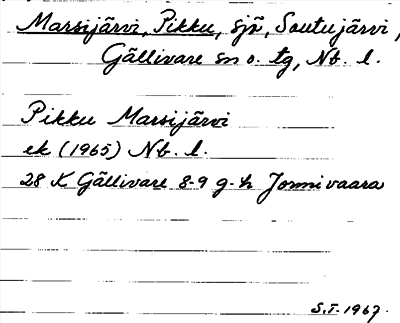 Marsijärvi, Pikku, sjö, Soutujärvi,
Gällivare sn o. tg, Nb. l.
Pikku Marsijärvi
ek (1965) Nb. l.
28 K Gällivare 8-9 g-h Jonnivaara
S.I. 1967.